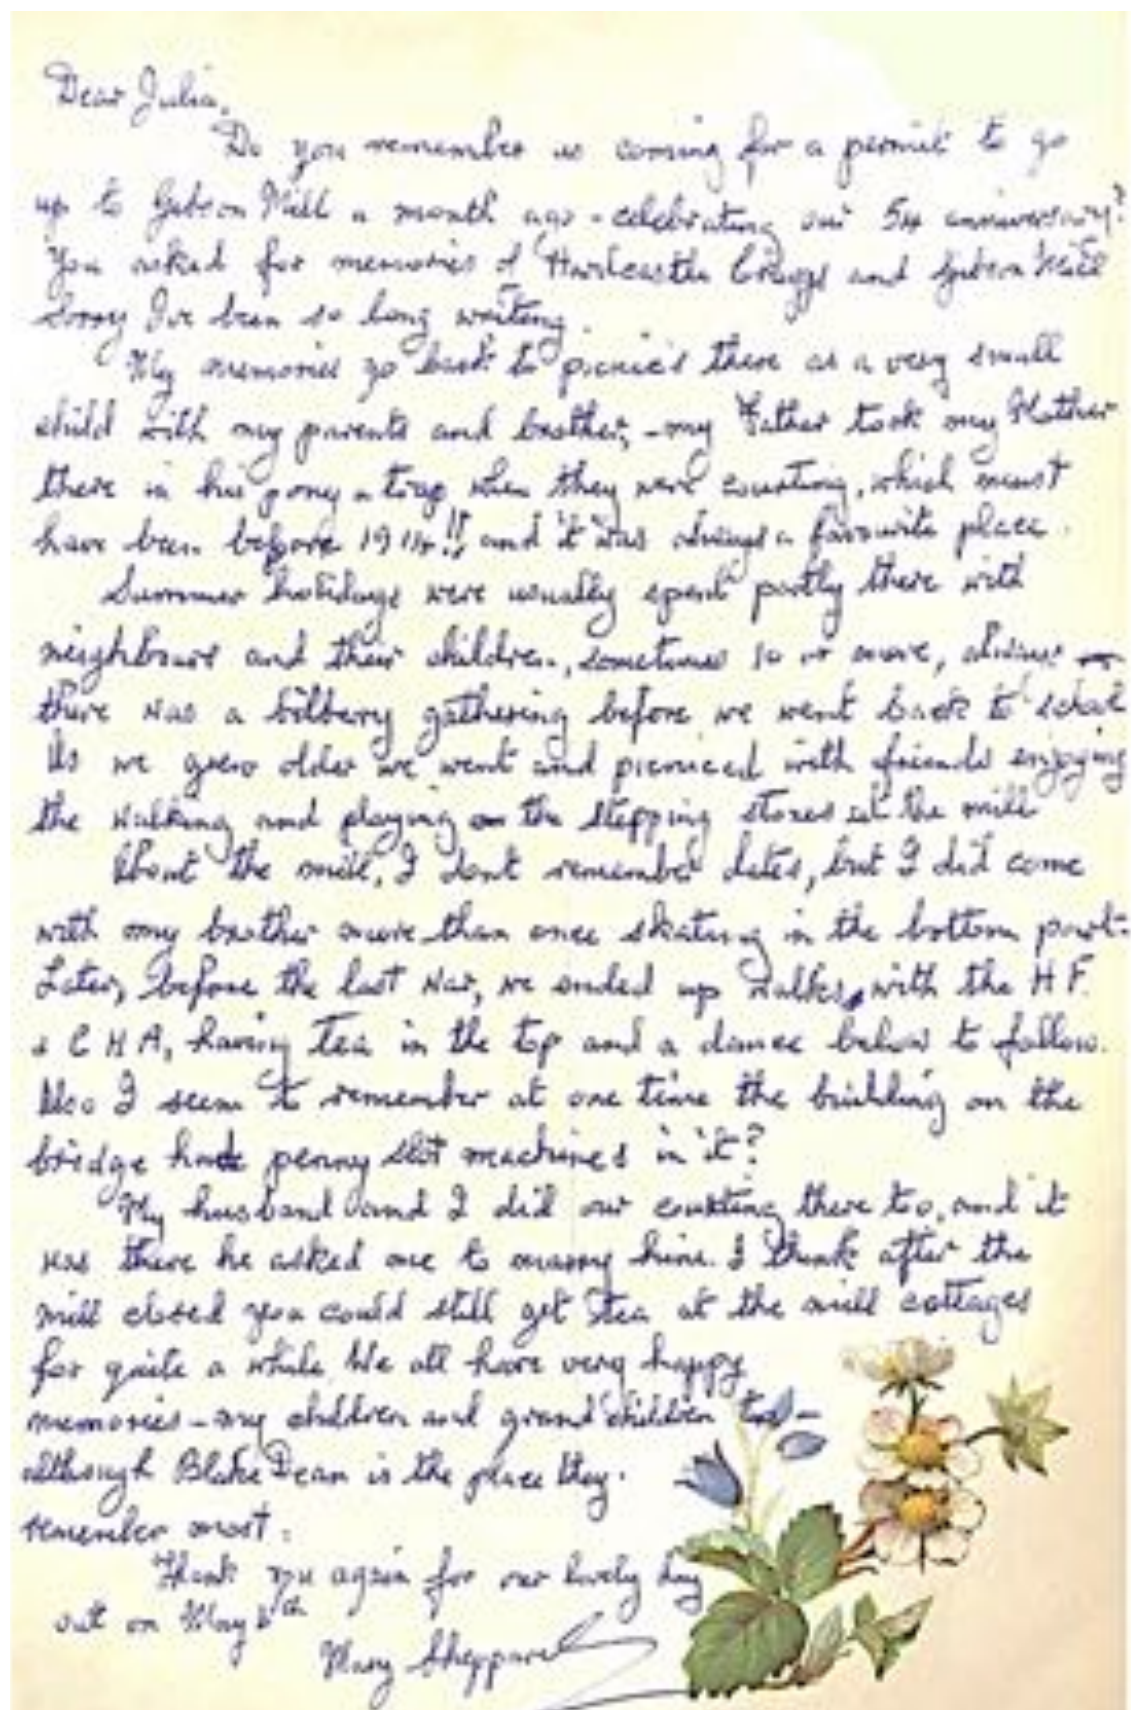 Dear Julia,
Do you remember us coming for a permit to go
up to Gibson Mill a month ago - celebrating our 54 anniversary?
You asked for memories of Hardcastle Craggs and Gibson Mill
Sorry I've been so long writing.
My memories go back to picnics there as a very small
child with my parents and brother, - my Father took my Mother
there in his pony n trap when they were courting, which must
have been before 1914!! and it was always a favourite place.
Summer holidays were usually spent partly there with
neighbours and their children, sometimes 10 or more, always
there was a bilbery gathering before we went back to school
As we grew older we went and picniced with friends enjoying
the walking and playing on the stepping stones at the mill
About the mill, I dont remember dates, but I did come
with my brother more than once skating in the bottom part.
Later, before the last war, we ended up walks, with the H F.
& C H A, having tea in the top and a dance below to follow.
Also I seem to remember at one time the building on the
bridge had penny slot machines in it?
My husband and I did our courting there too, and it
was there he asked me to marry him. I think after the
mill closed you could still get tea at the mill cottages
for quite a while We all have very happy
memories - my children and grand children too -
although Blake Dean is the place they
remember most.
Thank you again for our lovely day
out on May 6th
Mary Sheppard